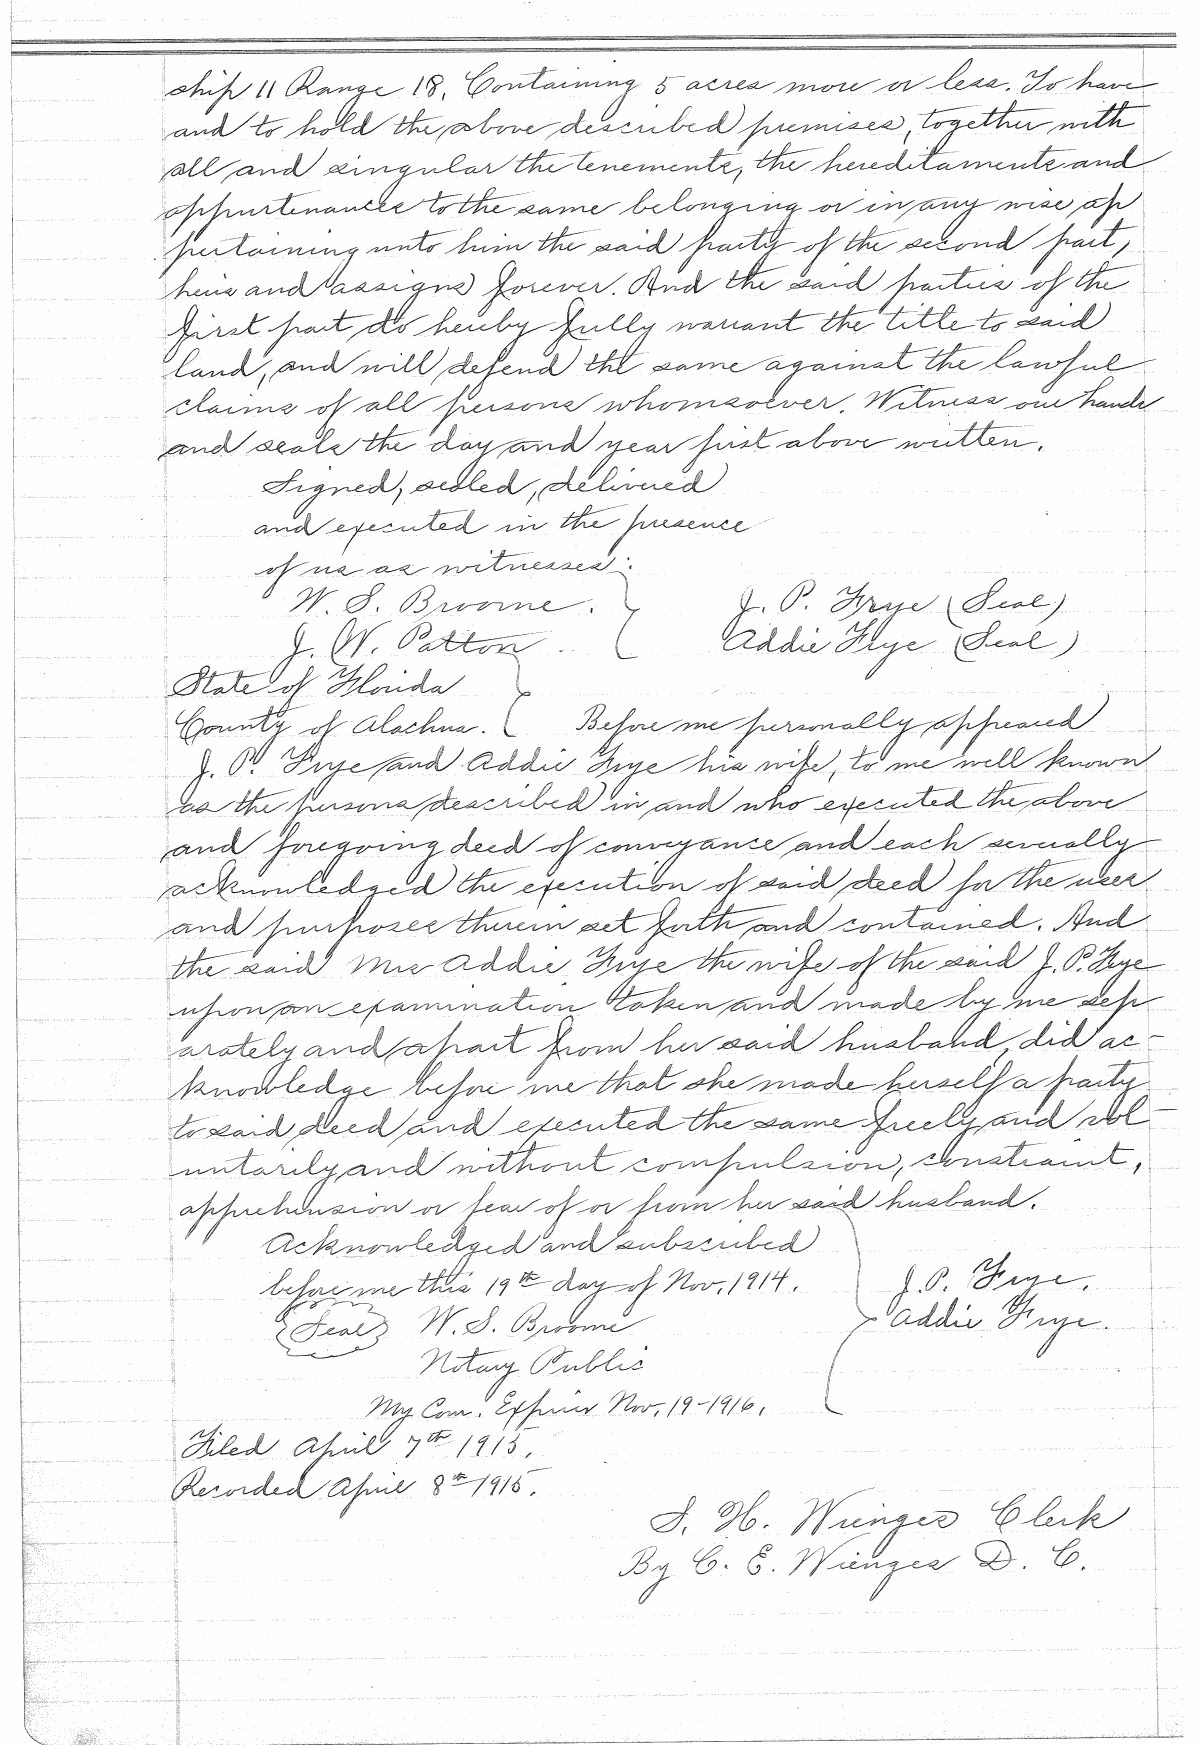 ship 11 Range 18, Containing 5 acres more or less. To have
and to hold the above described premises, together with
all and singular the tenements, the hereditaments and
appurtenances to the same belonging or in any wise ap
pertaining unto him the said party of the second part,
heirs and assigns forever. And the said parties of the
first part do hereby fully warrant the title to said
land, and will defend the same against the lawful
claims of all persons whomsoever. Witness our hands
and seals the day and year first above written.
Signed, sealed, delivered
and executed in the presence
of us as witnesses:
W. S. Broome. J. P. Frye (Seal)
J. W. Patton Addie Frye (Seal)
State of Florida
County of Alachua. Before me personally appeared
J. P. Frye and Addie Frye his wife, to me well known
as the persons described in and who executed the above
and foregoing deed of conveyance and each severally
acknowledged the execution of said deed for the uses
and purposes therein set forth and contained. And
the said Mrs Addie Frye the wife of the said J. P. Frye
upon an examination taken and made by me sep
arately and apart from her said husband, did ac-
knowledge before me that she made herself a party
to said deed and executed the same freely and vol-
untarily and without compulsion, constraint,
apprehension or fear of or from her said husband.
Acknowledged and subscribed
before me this 19th day of Nov, 1914. J. P. Frye.
(Seal) W. S. Broome Addie Frye.
Notary Public
My Com. Expires Nov, 19-1916,
Filed April 7th 1915.
Recorded April 8th 1915.
S. H. Wienges Clerk
By C. E. Wienges D. C.